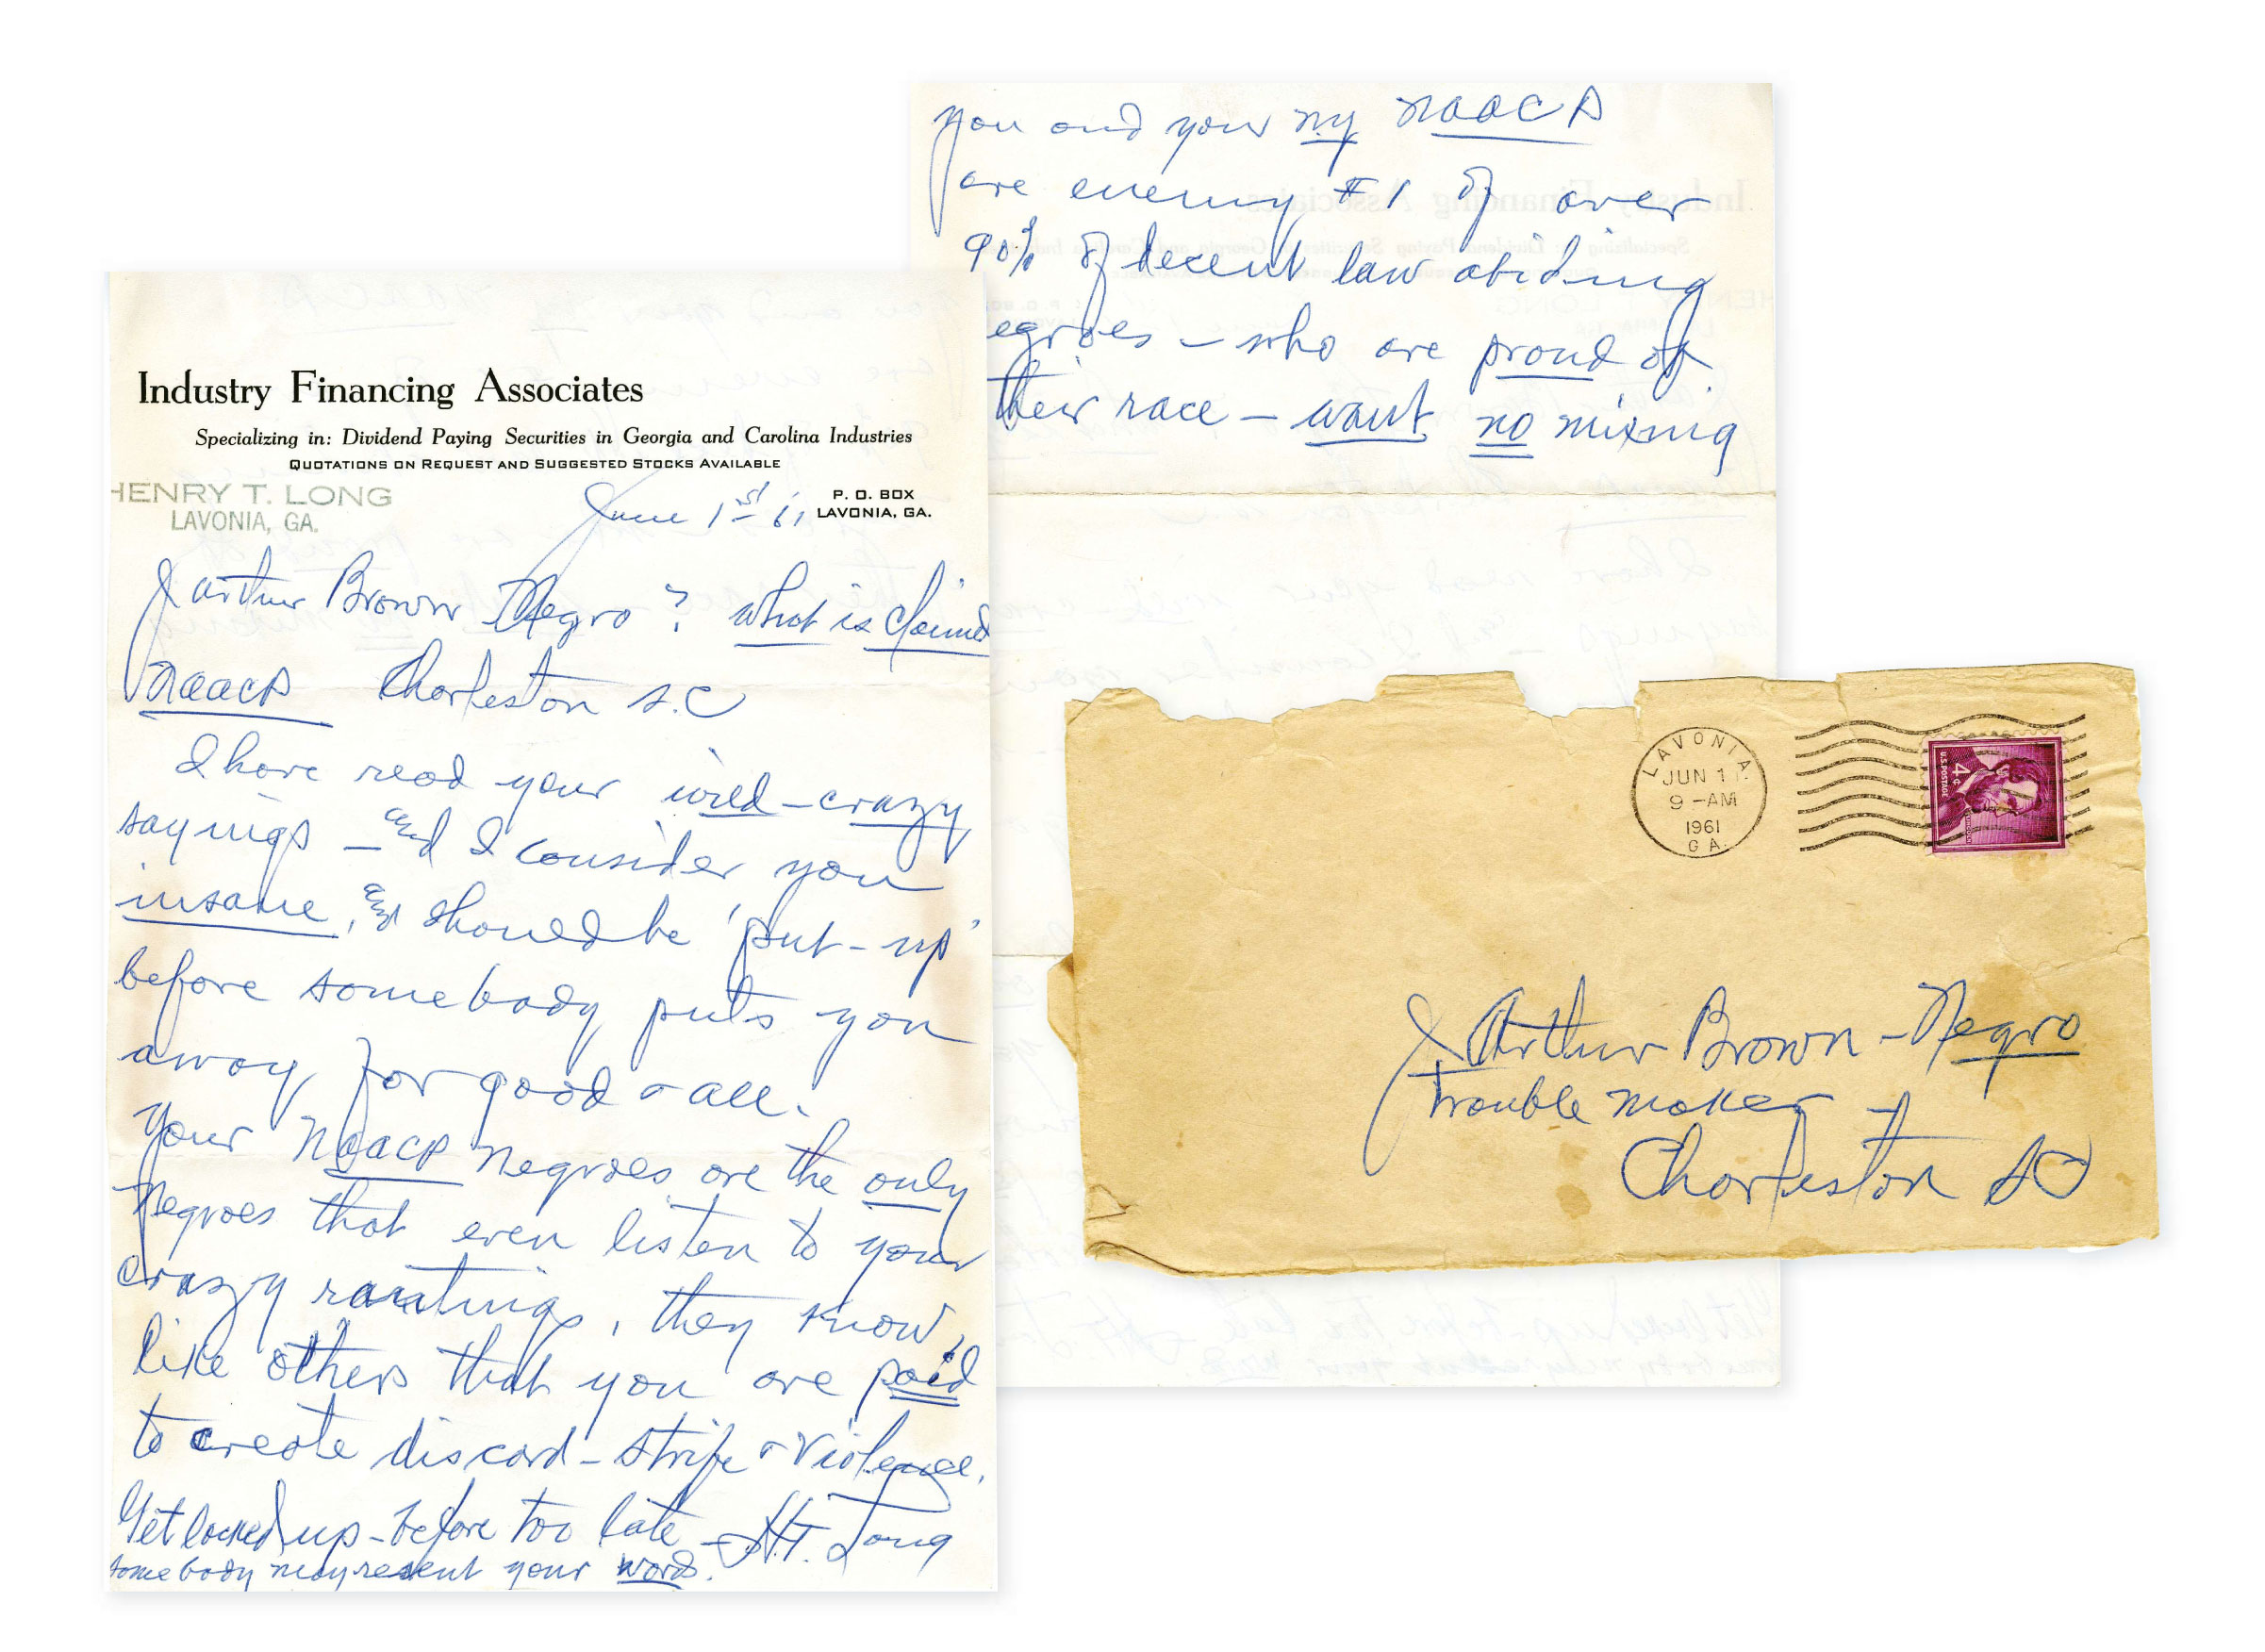 Industry Financing Associates
Specializing in: Dividend Paying Securities in Georgia and Carolina Industries
QUOTATIONS ON REQUEST AND SUGGESTED STOCKS AVAILABLE
HENRY T. LONG
LAVONIA, GA.
June 1st 61
P. O. BOX
LAVONIA, GA.
J Arthur Brown Negro? what is claimed
NAACP Charleston S.C
I have read your wild-crazy
sayings - and I consider you
insane, and should be 'put-up'
before somebody puts you
away for good & all.
Your NAACP Negroes are the only
Negroes that even listen to your
crazy rantings, they know,
like others that you are paid
to create discord - strife & violence.
Get locked up - before too late - H.T. Long
somebody may resent your words.
you and your NY NAACP
are enemy #1 of over
90% of decent law abiding
egroes - who are proud of
their race - want no mixing
LAVONIA
JUN 1
9 -AM
1961
GA.
4c
U.S. POSTAGE
J Arthur Brown - Negro
Trouble maker
Charleston SC